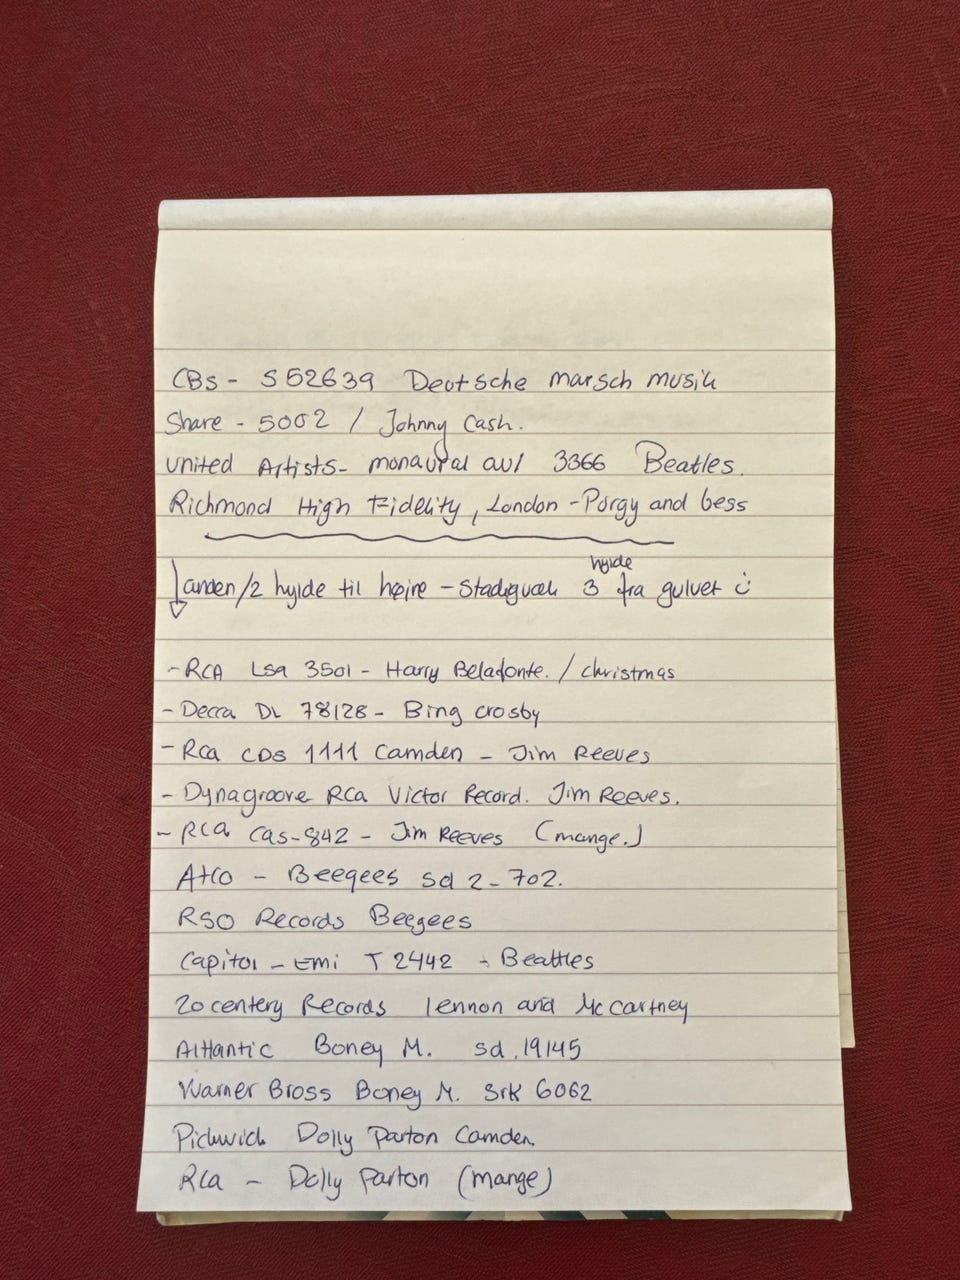 CBS - S 52639 Deutsche marsch musik
Share - 5002 / Johnny Cash.
United Artists - monaural aul 3366 Beatles.
Richmond High Fidelity, London - Porgy and bess
hylde
anden/2 hylde til højre - Stadigvæk 3 fra gulvet
- RCA Lsa 3501 - Harry Belafonte. / christmas
- Decca DL 78128 - Bing crosby
- Rca CDS 1111 Camden - Jim Reeves
- Dynagroove RCa Victor Record. Jim Reeves.
- RCa Cas-842 - Jim Reeves (mange.)
Atco - Beegees Sd 2-702.
RSO Records Beegees
Capitol - Emi T 2442 - Beattles
20 centery Records lennon and McCartney
Atltantic Boney M. Sd.19145
Warner Bross Boney M. Srk 6062
Pickwick Dolly Parton Camden
RCa - Dolly Parton (mange)